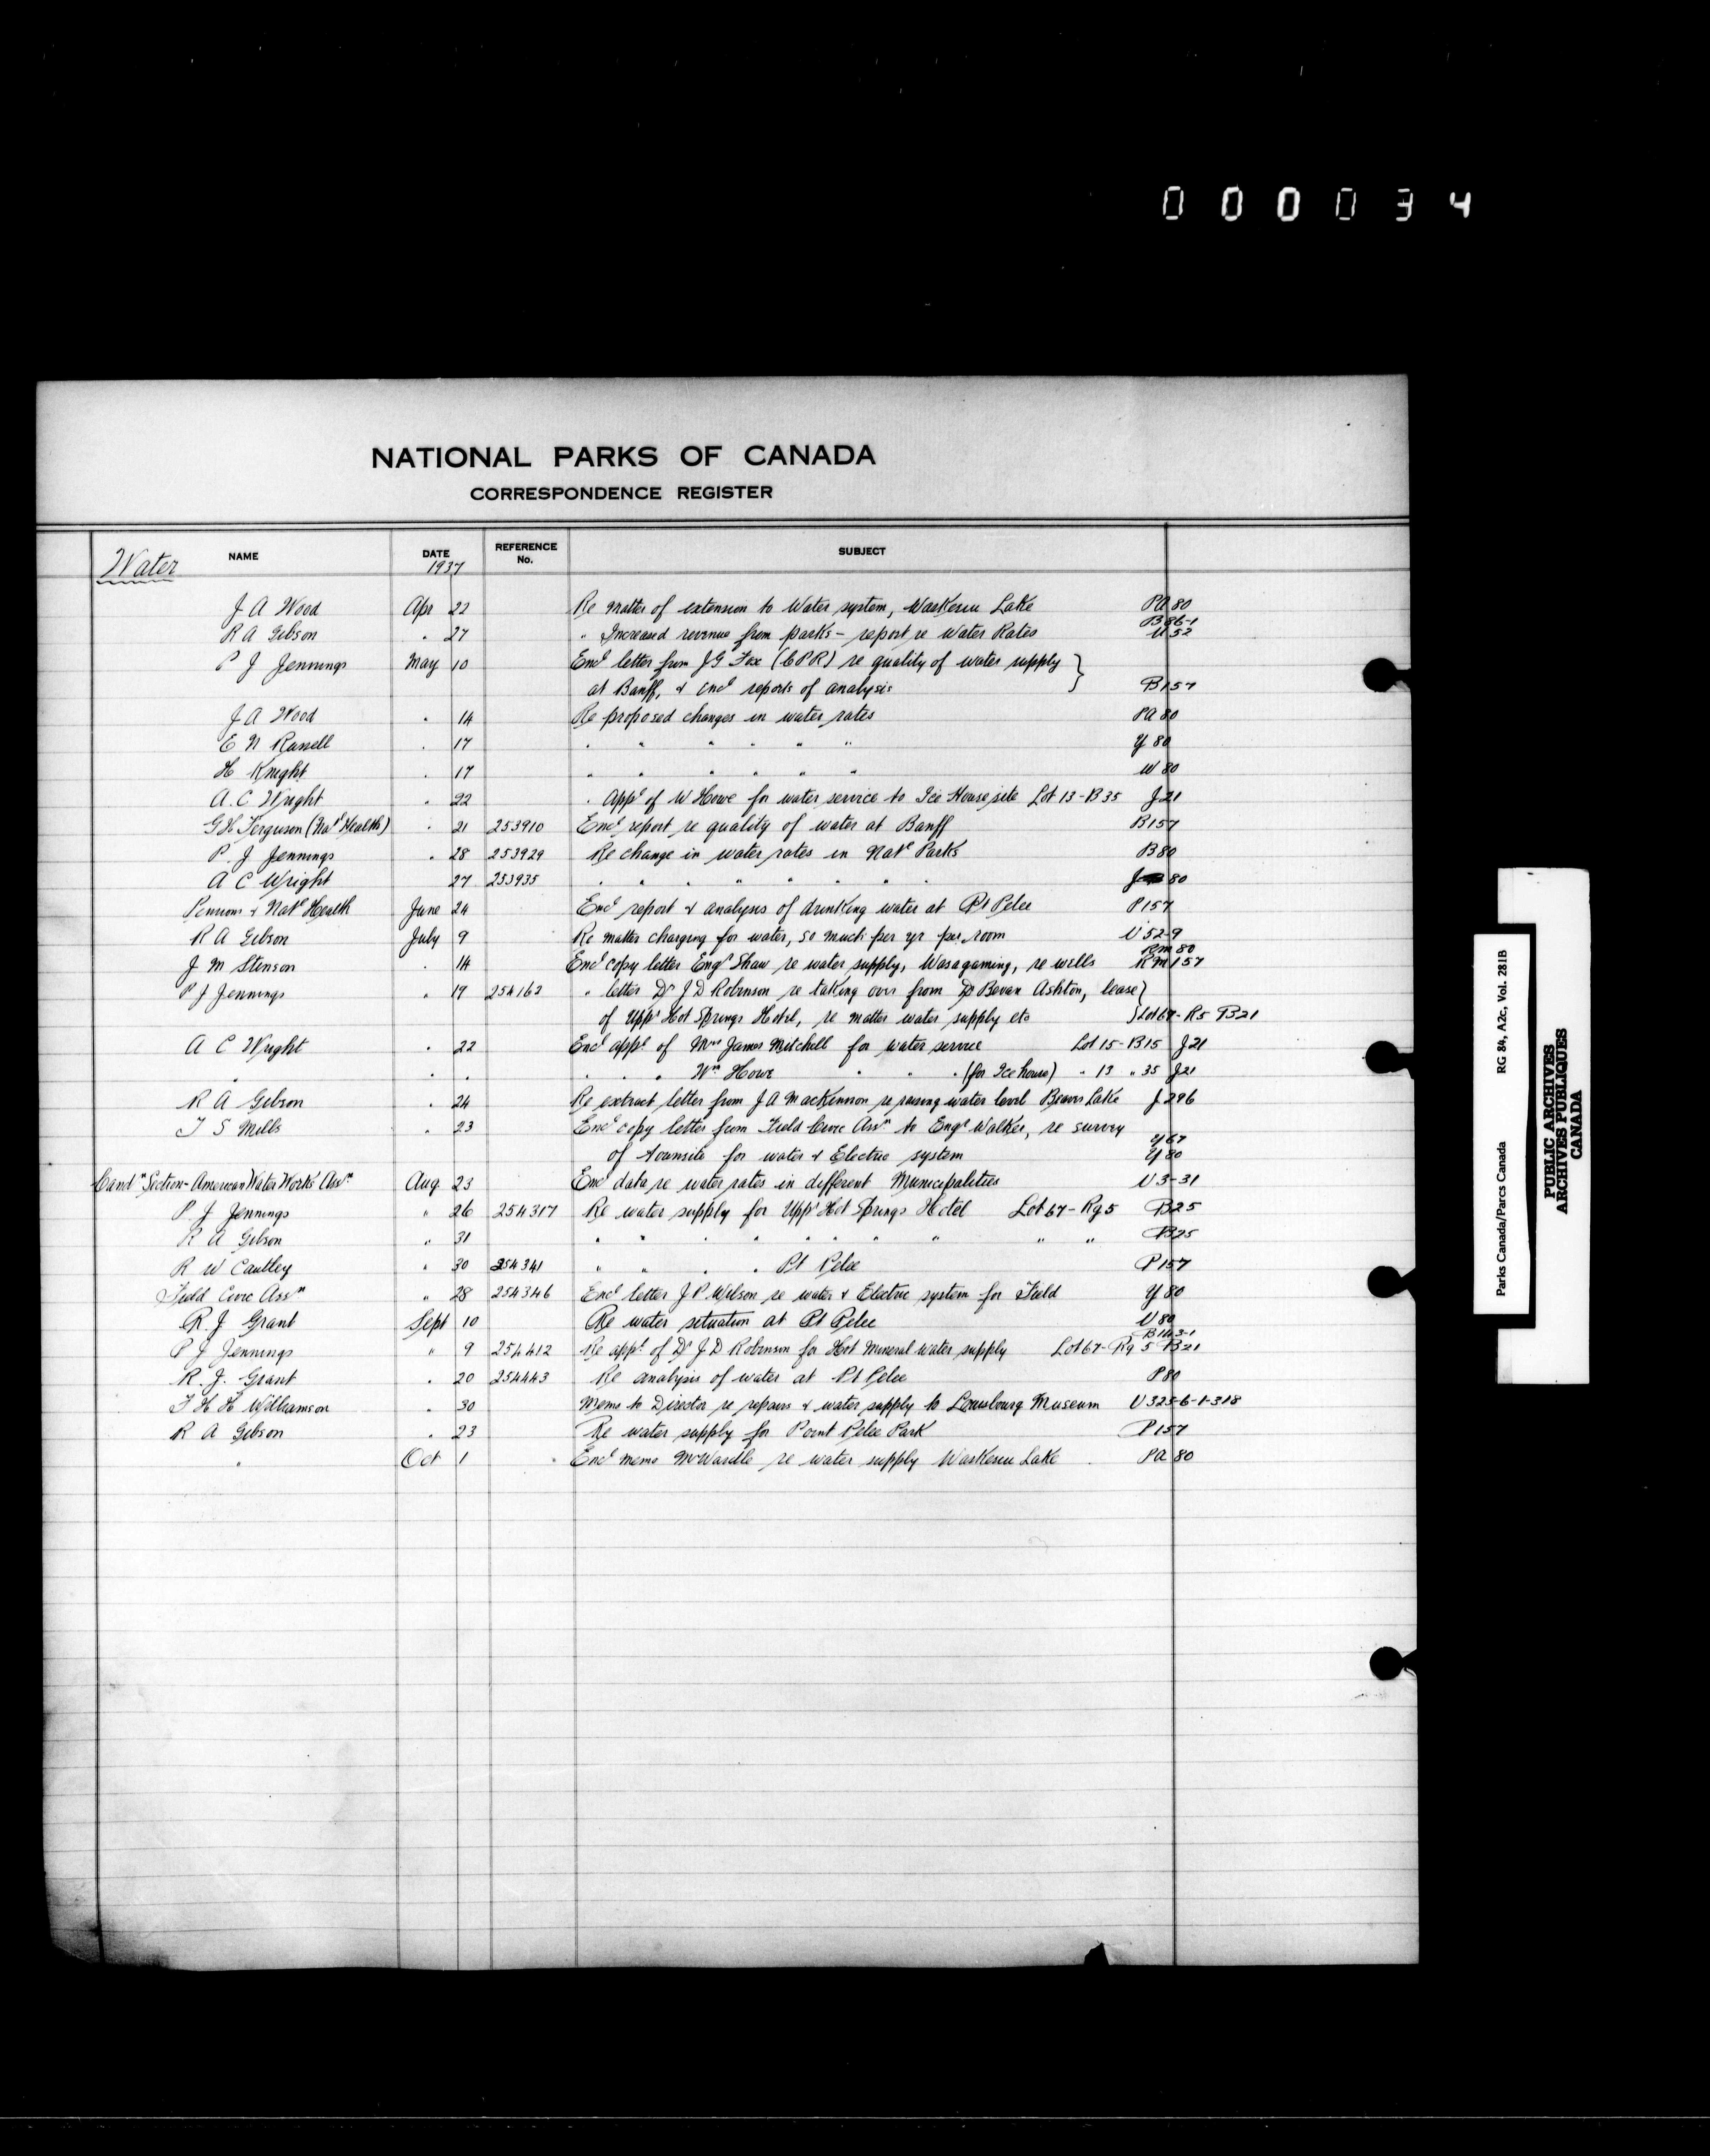 000034
NATIONAL PARKS OF CANADA
CORRESPONDENCE REGISTER
Water NAME DATE 1937 REFERENCE No. SUBJECT
J A Wood Apr 22 Re matter of extension to Water system, Waskesiu Lake PA 80
R A Gibson " 27 " Increased revenue from parks - report re Water Rates B86-1 U52
P J Jennings May 10 Encl letter from J G Fox (CPR) re quality of water supply }
at Banff, & encl reports of analysis B157
J A Wood " 14 Re proposed changes in water rates PA 80
E N Russell " 17 " " " " " " Y 80
H Knight " 17 " " " " " " W 80
A. C Wright " 22 " Appl of W Howe for water service to Ice House site Lot 13-B35 J21
G H Ferguson (Natl Health) " 21 253910 Encl report re quality of water at Banff B157
P. J Jennings " 28 253929 Re change in water rates in Natl Parks B80
A C Wright 27 253935 " " " " " " " " J 80
Pensions & Natl Health June 24 Encl report & analysis of drinking water at Pt Pelee P157
R A Gibson July 9 Re matter charging for water, so much per yr per room U 52-9
J M Stenson " 14 Encl copy letter Engr Shaw re water supply, Wasagaming, re wells RM 80 RM157
P J Jennings " 19 254162 " letter Dr J D Robinson re taking over from Dr Bevan Ashton, lease }
of Uppr Hot Springs Hotel, re matter water supply etc } Lot 67-R5 B21
A C Wright " 22 Encl appl of Mrs James Mitchell for water service Lot 15-B15 J21
" " " " " " Wm Howe " " " (for Ice house) " 13 " 35 J21
R A Gibson " 24 Re extract letter from J A MacKinnon re raising water level Beaver Lake J 296
T S Mills " 23 Encl copy letter from Field Civic Assn to Engr Walker, re survey
of townsite for water & Electric system Y67 Y80
Cand'n Section-American Water Works Assn Aug 23 Enc data re water rates in different Municipalities U3-31
P. J Jennings " 26 254317 Re water supply for Uppr Hot Springs Hotel Lot 67-Rg5 B25
R A Gibson " 31 " " " " " " " " " " B25
R W Cautley " 30 254341 " " " " Pt Pelee P157
Field Civic Assn " 28 254346 Encl letter J P. Wilson re water & Electric system for Field Y 80
R. J Grant Sept 10 Re water situation at Pt Pelee U 80
P J Jennings " 9 254412 Re appl of Dr J D Robinson for Hot Mineral water supply Lot 67-Rg 5 B143-1 B21
R. J. Grant " 20 254443 Re analysis of water at Pt Pelee P80
F H H Williamson " 30 Memo to Director re repairs & water supply to Louisbourg Museum U325-6-1-318
R A Gibson " 23 Re water supply for Point Pelee Park P157
" Oct 1 Encl memo Mr Wardle re water supply Waskesiu Lake PA 80
Parks Canada/Parcs Canada RG 84, A2c, Vol. 281B
PUBLIC ARCHIVES
ARCHIVES PUBLIQUES
CANADA